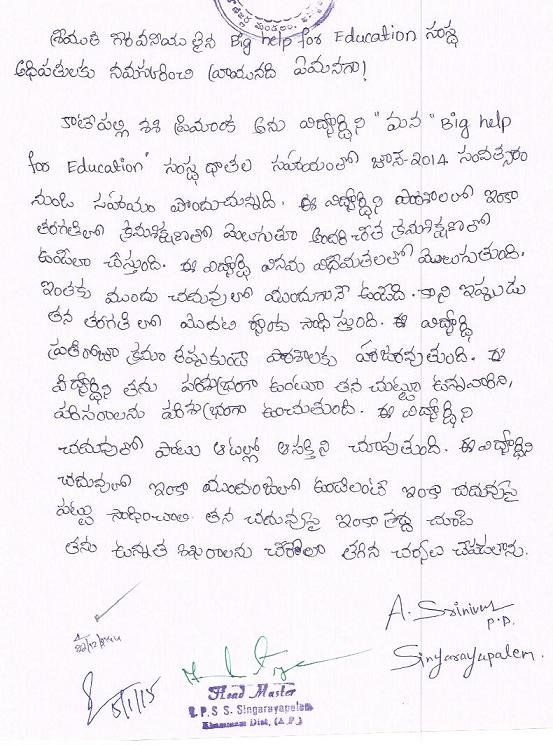 శ్రీయుత గౌరవనీయులైన Big help for Education సంస్థ
అధిపతులకు నమస్కరించి వ్రాయునది ఏమనగా!
కాటేపల్లి శశి ప్రియాంక అను విద్యార్థిని "మన "Big help
for Education" సంస్థ దాతల సహాయంతో జూన్-2014 సంవత్సరం
నుండి సహాయం పొందుచున్నది. ఈ విద్యార్థిని పాఠశాలలో ఇంకా
తరగతిలో క్రమశిక్షణతో మెలుగుతూ అందరి చేత క్రమశిక్షణతో
ఉండేలా చేస్తుంది. ఈ విద్యార్థి వినయ విధేయతలతో మెలుగుతుంది.
ఇంతకు ముందు చదువులో ముందుగానే ఉండేది. కాని ఇప్పుడు
తన తరగతి లో మొదటి ర్యాంకు సాధిస్తుంది. ఈ విద్యార్థి
ప్రతిరోజూ క్రమం తప్పకుండా పాఠశాలకు హాజరవుతుంది. ఈ
విద్యార్థిని తను పరిశుభ్రంగా ఉంటూ తన చుట్టూ ఉన్నవారిని,
పరిసరాలను పరిశుభ్రంగా ఉంచుతుంది. ఈ విద్యార్థిని
చదువుతో పాటు ఆటల్లో ఆసక్తిని చూపుతుంది. ఈ విద్యార్థిని
చదువులో ఇంకా ముందంజలో ఉండేలంటే ఇంకా చదువుపై
పట్టు సాధించాలి. తన చదువుపై ఇంకా శ్రద్ద చూపి
తను ఉన్నత శిఖరాలను చేరేలా తగిన చర్యలు చేపడతాను.
A. Srinivas
P.D.
Singarayapalem.
5/1/15
Head Master
Z.P.S.S. Singarayapalem
Khammam Dist, (A.P.)